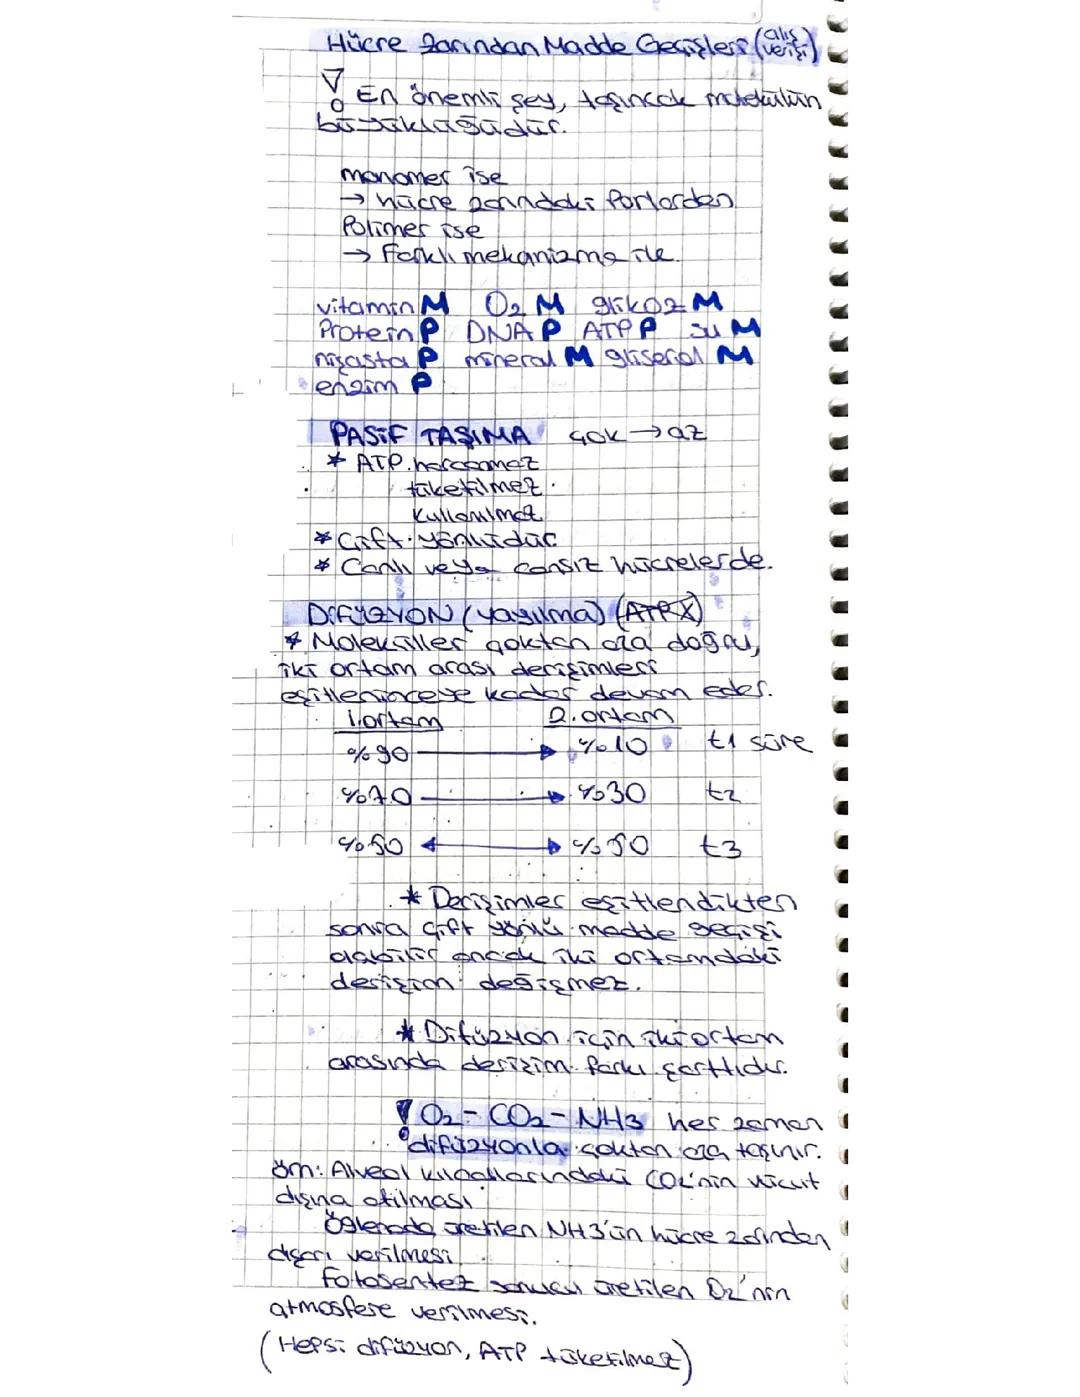 Hücre Zarından Madde Geçişleri (alış verişi)
! En önemli şey, taşınacak molekülün
büyüklüğüdür.
monomer ise
→ hücre zarındaki Porlardan
Polimer ise
→ Farklı mekanizma ile.
vitamin M O2 M glikoz M
Protein P DNA P ATP P su M
nişasta P mineral M gliserol M
enzim P
PASİF TAŞIMA çok → az
* ATP harcanmaz
tüketilmez
kullanılmaz
* Çift yönlüdür
* Canlı veya cansız hücrelerde.
DİFÜZYON (yayılma) (ATP X)
* Moleküller çoktan aza doğru,
iki ortam arası derişimleri
eşitleninceye kadar devam eder.
1.ortam 2.ortam
%90 → %10 t1 süre
%70 → %30 t2
%50 ↔ %50 t3
* Derişimler eşitlendikten
sonra çift yönlü madde geçişi
olabilir ancak iki ortamdaki
derişim değişmez.
* Difüzyon için iki ortam
arasında derişim farkı şarttıdır.
! O2 - CO2 - NH3 her zaman
difüzyonla çoktan aza taşınır.
örn: Alveol kılcallarındaki CO2'nin vücut
dışına atılması
Öglenada üretilen NH3'ün hücre zarından
dışarı verilmesi
Fotosentez sonucu üretilen O2'nin
atmosfere verilmesi.
(Hepsi difüzyon, ATP tüketilmez)